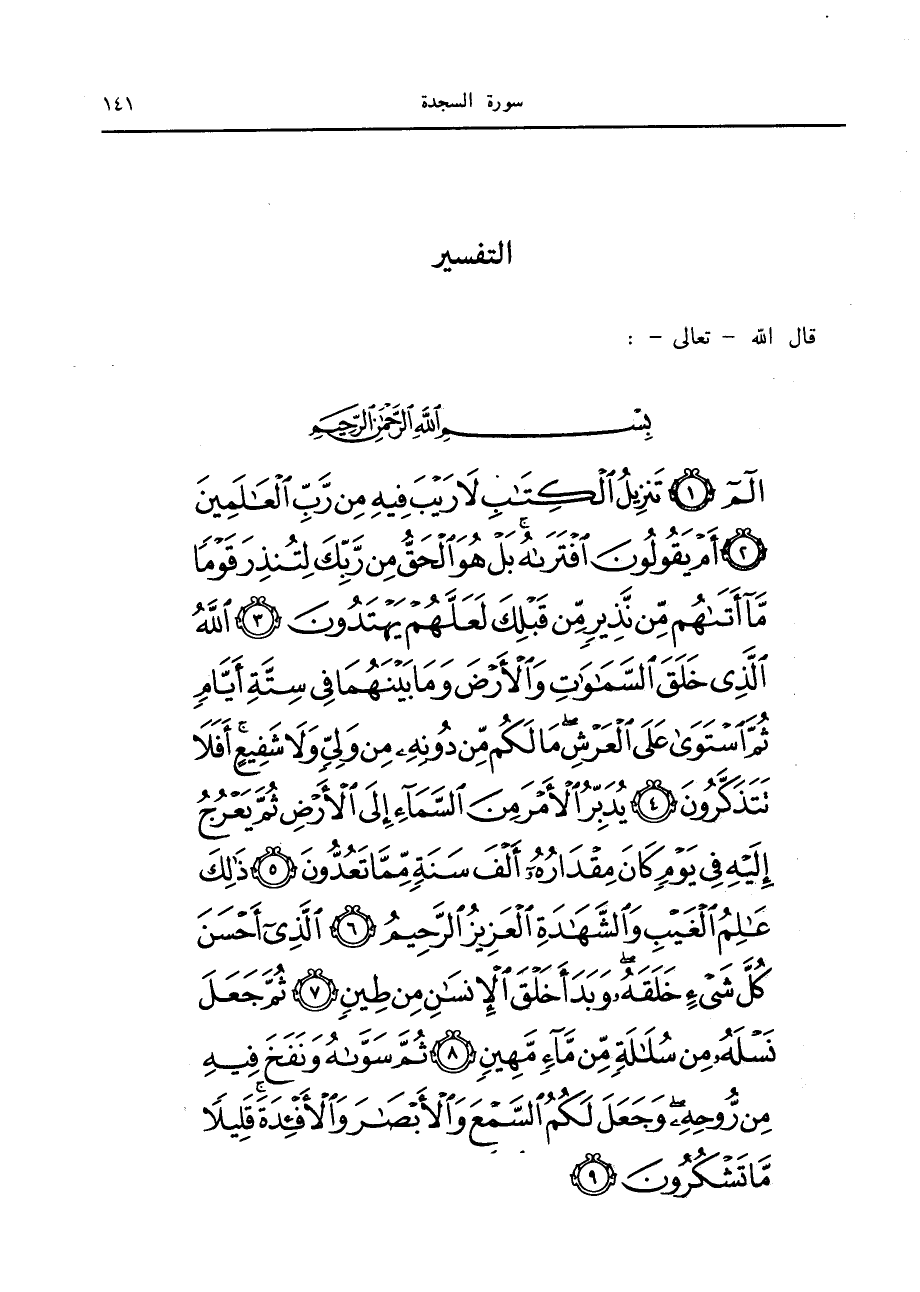 سورة السجدة ١٤١
التفسير
قال الله – تعالى – :
بِسْمِ ٱللَّهِ ٱلرَّحْمَٰنِ ٱلرَّحِيمِ
الٓمٓ ١ تَنزِيلُ ٱلْكِتَٰبِ لَا رَيْبَ فِيهِ مِن رَّبِّ ٱلْعَٰلَمِينَ
٢ أَمْ يَقُولُونَ ٱفْتَرَىٰهُ ۚ بَلْ هُوَ ٱلْحَقُّ مِن رَّبِّكَ لِتُنذِرَ قَوْمًا
مَّآ أَتَىٰهُم مِّن نَّذِيرٍ مِّن قَبْلِكَ لَعَلَّهُمْ يَهْتَدُونَ ٣ ٱللَّهُ
ٱلَّذِى خَلَقَ ٱلسَّمَٰوَٰتِ وَٱلْأَرْضَ وَمَا بَيْنَهُمَا فِى سِتَّةِ أَيَّامٍ
ثُمَّ ٱسْتَوَىٰ عَلَى ٱلْعَرْشِ ۖ مَا لَكُم مِّن دُونِهِۦ مِن وَلِىٍّ وَلَا شَفِيعٍ ۚ أَفَلَا
تَتَذَكَّرُونَ ٤ يُدَبِّرُ ٱلْأَمْرَ مِنَ ٱلسَّمَآءِ إِلَى ٱلْأَرْضِ ثُمَّ يَعْرُجُ
إِلَيْهِ فِى يَوْمٍ كَانَ مِقْدَارُهُۥٓ أَلْفَ سَنَةٍ مِّمَّا تَعُدُّونَ ٥ ذَٰلِكَ
عَٰلِمُ ٱلْغَيْبِ وَٱلشَّهَٰدَةِ ٱلْعَزِيزُ ٱلرَّحِيمُ ٦ ٱلَّذِىٓ أَحْسَنَ
كُلَّ شَىْءٍ خَلَقَهُۥ ۖ وَبَدَأَ خَلْقَ ٱلْإِنسَٰنِ مِن طِينٍ ٧ ثُمَّ جَعَلَ
نَسْلَهُۥ مِن سُلَٰلَةٍ مِّن مَّآءٍ مَّهِينٍ ٨ ثُمَّ سَوَّىٰهُ وَنَفَخَ فِيهِ
مِن رُّوحِهِۦ ۖ وَجَعَلَ لَكُمُ ٱلسَّمْعَ وَٱلْأَبْصَٰرَ وَٱلْأَفْـِٔدَةَ ۚ قَلِيلًا
مَّا تَشْكُرُونَ ٩